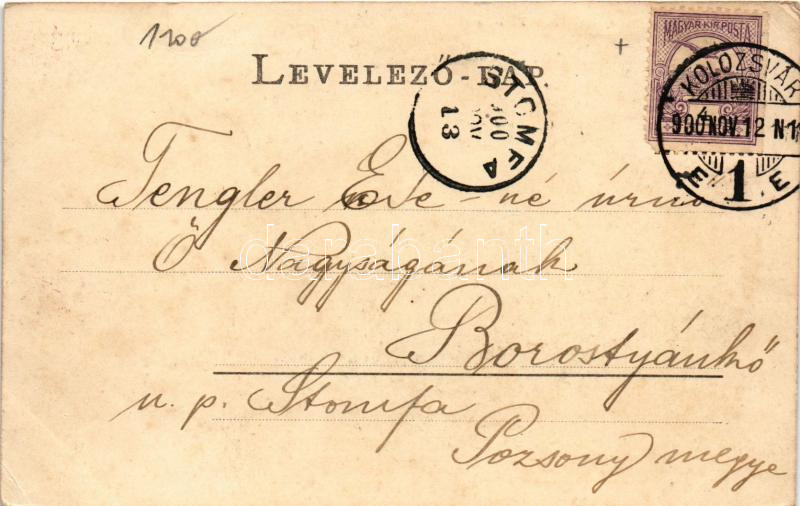 1200
+
MAGYAR·KIR·POSTA
4
KOLOZSVÁR
900 NOV. 12 N1
1
LEVELEZŐ-LAP.
STOMFA
900
NOV
13
Tengler né úrnő
Ő Nagyságának
Borostyánkő
u. p. Stomfa
Pozsony megye
darabanth